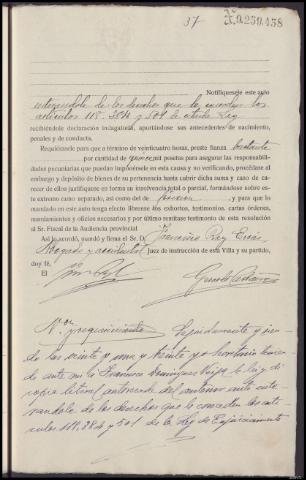 37
Notifíquesele este auto
enterandole de los derechos que le conceden los
artículos 118. 384 y 501 de citada Ley
recibiéndole declaración indagatoria, aportándose sus antecedentes de nacimiento,
penales y de conducta.
Requiérasele para que a término de veinticuatro horas, preste fianza bastante
por cantidad de pesetas para asegurar las responsabili-
dades pecuniarias que puedan imponérsele en esta causa y no verificando, procédase al
embargo y depósito de bienes de su pertenencia hasta cubrir dicha suma y caso de ca-
recer de ellos justifíquese en forma su insolvencia total o parcial, formándose sobre es-
te extremo ramo separado, así como del de y para que lo
mandado en este auto tenga efecto líbrense los oportunos, testimonios, cartas órdenes,
mandamientos y oficios necesarios y por último remítase testimonio de esta resolución
al Sr. Fiscal de la Audiencia provincial
Así lo acordó, mandó y firma el Sr. D. Rey
Abogado y accidental Juez de instrucción de esta Villa y su partido,
doy fé.
El
Seguidamente y sien-
do las veinte y una y treinta
ante mi lo Francisco Dominguez le leí y di
copia literal del anterior auto ente-
randole de los derechos que le conceden los ar-
ticulos 118. 384 y 501 de la Ley de Enjuiciamiento